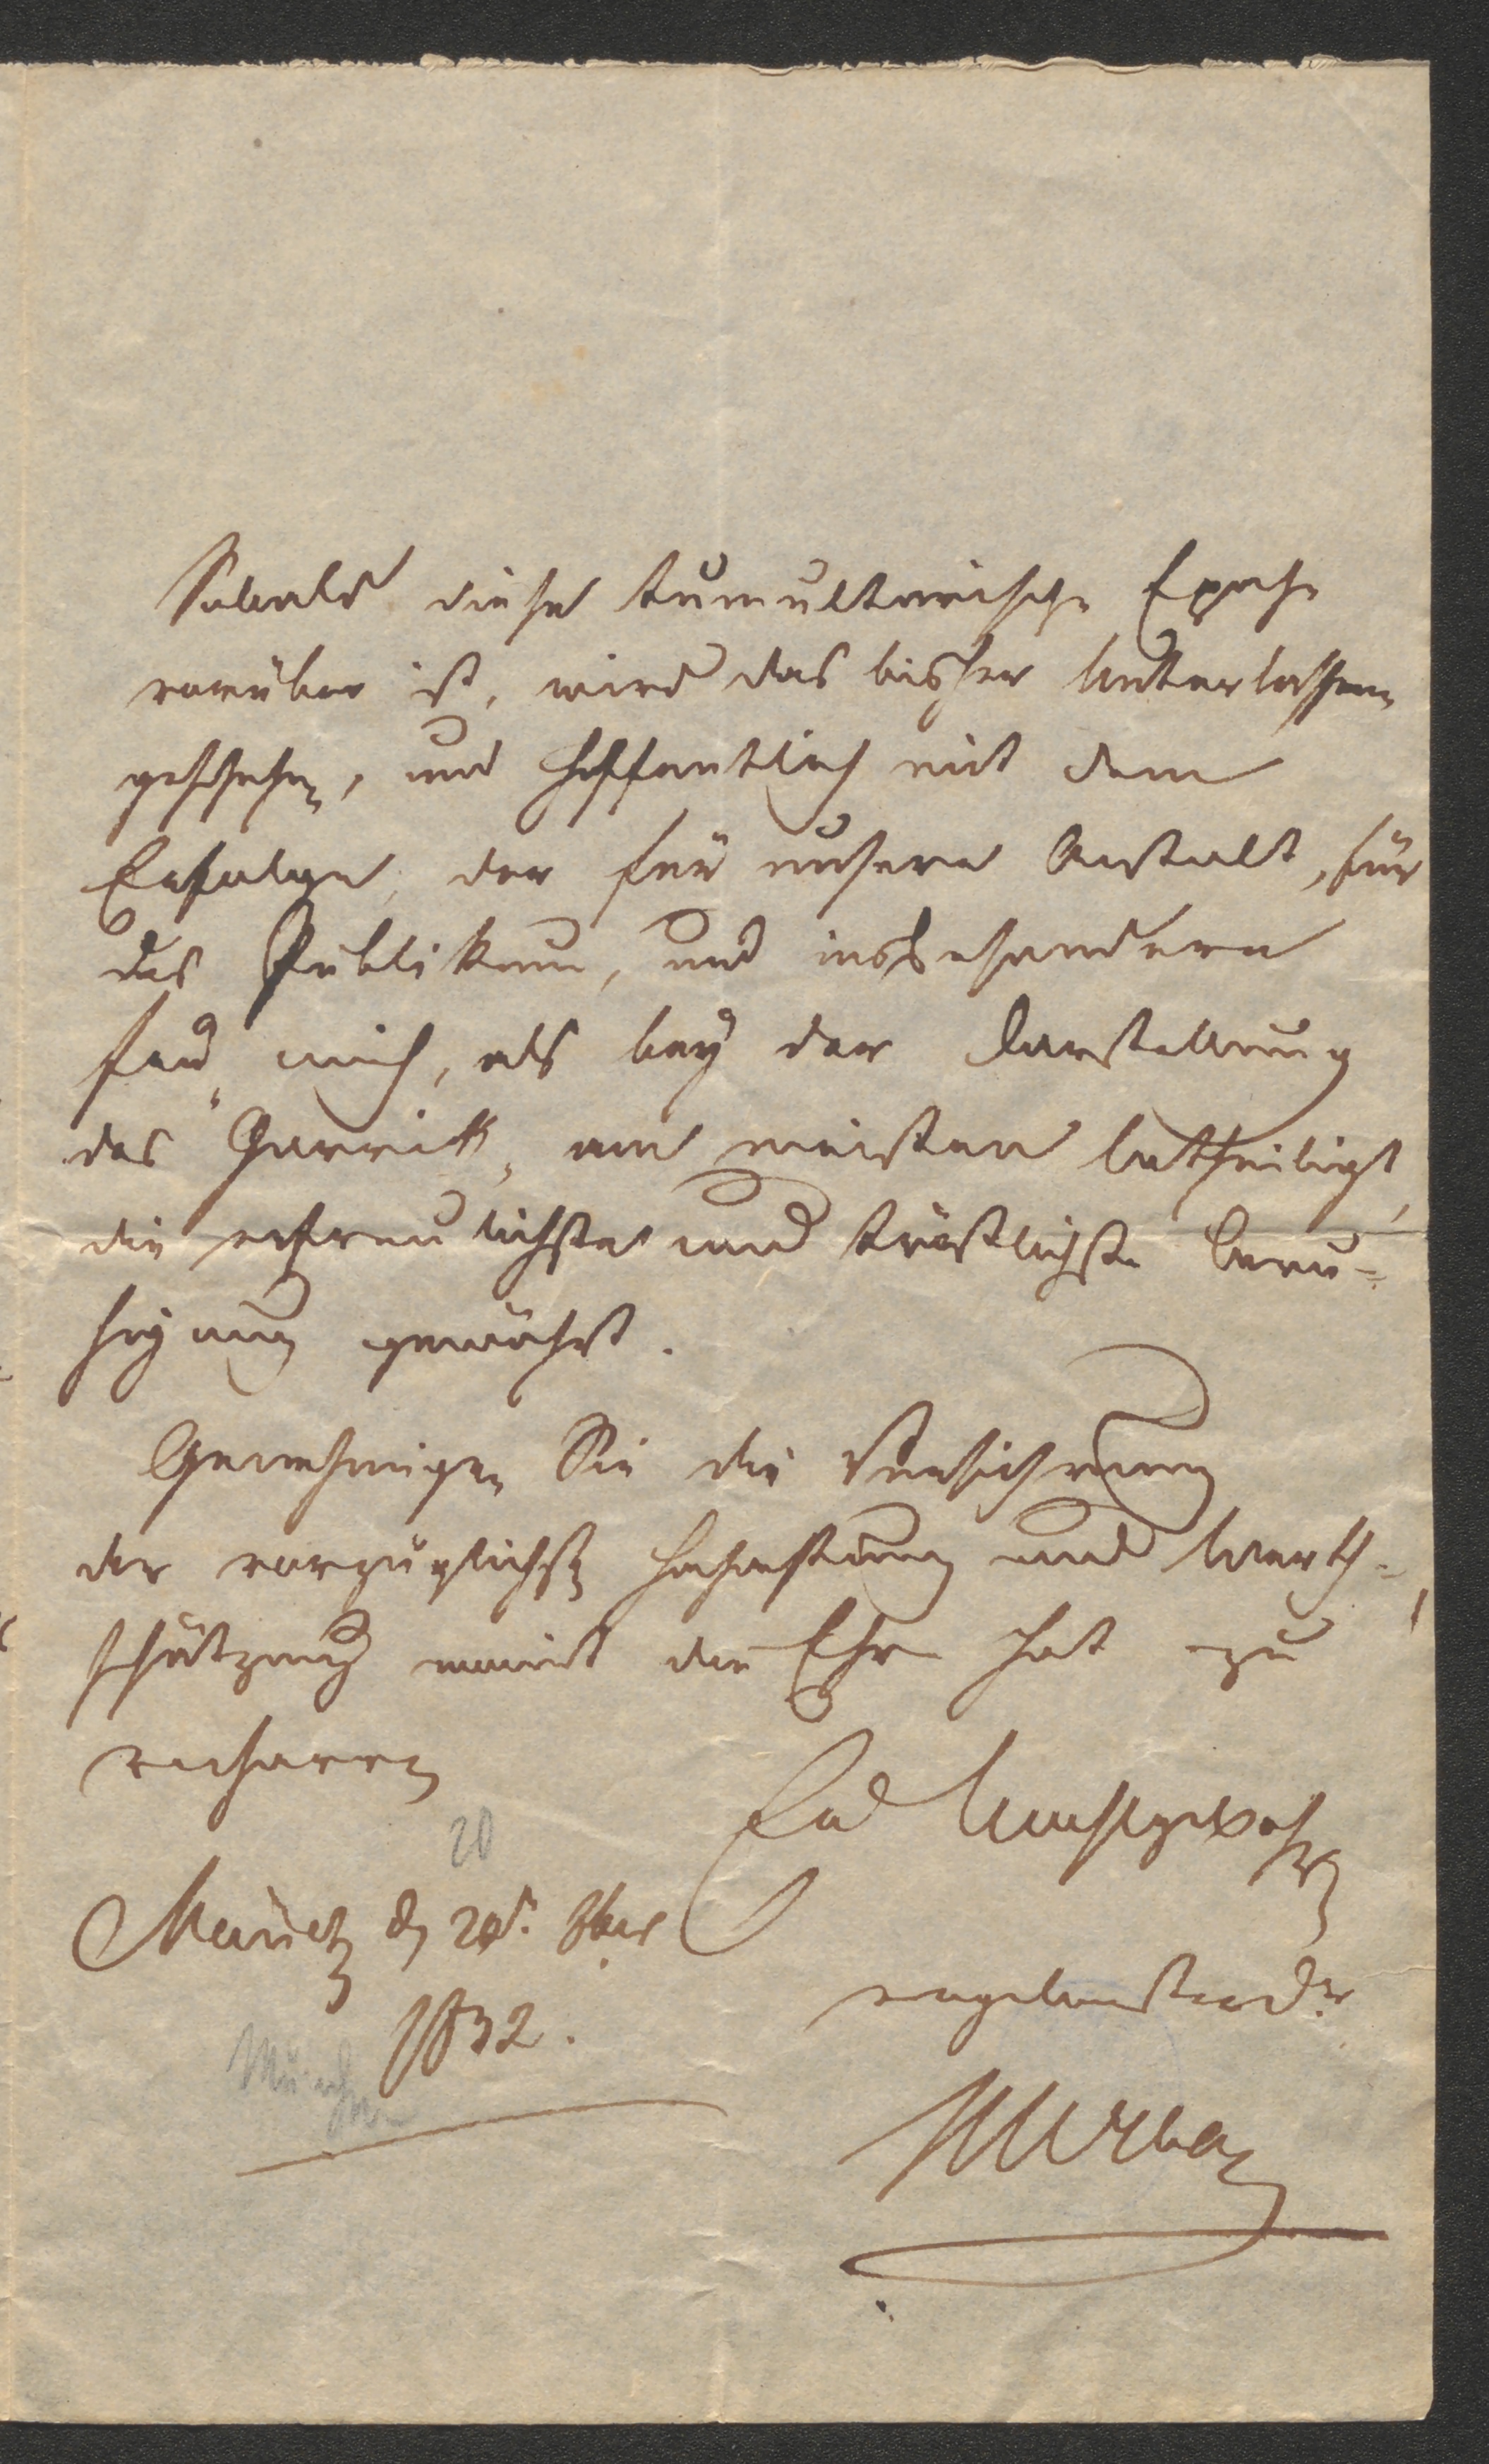 Sobald diese tumultarische Epoche
vorüber ist, wird das bisher Unterlassene
geschehen, und hoffentlich mit dem
Erfolge, der für unsere Anstalt, für
das Publikum, und insbesondere
für mich, als bey der Darstellung
des "Garrick" am meisten betheiligt,
die erfreulichste und tröstlichste Beru-
higung gewährt.
Genehmigen Sie die Versicherung
der vorzüglichsten Hochachtung und Werth-
schätzung womit die Ehre hat zu
verharren
20
Eur Wohlgeboren
München den 20t. 8ber
ergebenster Dr
1832.
München
Urban